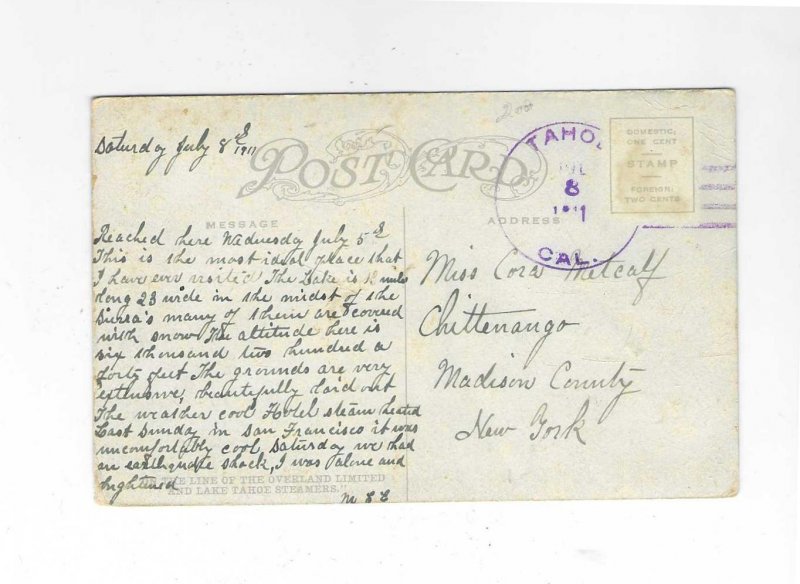 2.00
Saturday July 8th 1911
POST CARD
TAHOE
JUL
8
1911
CAL.
DOMESTIC;
ONE CENT
STAMP
FOREIGN:
TWO CENTS
MESSAGE
ADDRESS
Reached here Wednesday July 5th
This is the most ideal place that
I have ever visited The Lake is 12 miles
long 23 wide in the midst of the
Sierra's many of them are covered
with snow The altitude here is
six thousand two hundred &
forty feet The grounds are very
extensive, beautifully laid out
The weather cool Hotel steam heated
Last Sunday in San Francisco it was
uncomfortably cool, Saturday we had
an earthquake shock, I was alone and
frightened
M E E
"ON THE LINE OF THE OVERLAND LIMITED
AND LAKE TAHOE STEAMERS."
Miss Cora Metcalf
Chittenango
Madison County
New York